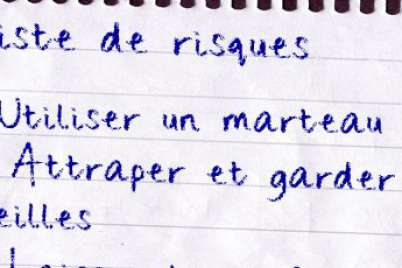 iste de risques
Utiliser un marteau
Attraper et garder
eilles